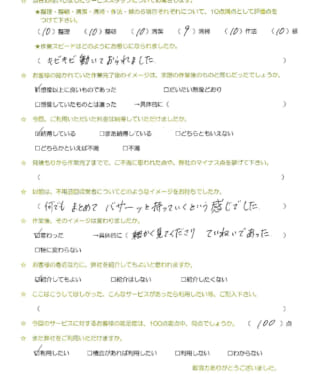 ★整理・整頓・清潔・清掃・作法・躾の5項目それぞれについて、10点満点として評価点をつけて下さい。
(10)整理 (10)整頓 (10)清潔 (9)清掃 (10)作法 (10)躾
★作業スピードはどのようにお感じになられましたか。
( キビキビ動いておられました )
☆ お客様の描かれていた作業完了後のイメージは、実際の作業後のものと同じだったでしょうか。
☑想像以上に良いものであった □だいたい想像どおり
□想像していたものとは違った →具体的に( )
☆ 今回、ご利用いただいた料金は納得していただけましたか。
☑納得している □まあ納得している □どちらともいえない
□どちらかといえば不満 □不満
☆ 見積もりから作業完了までで、ご不満に思われた点や、弊社のマイナス点を挙げて下さい。
( )
☆ 以前は、不用品回収業者についてどのようなイメージをお持ちでしたか。
( 何でもまとめてバサーッと持っていくという感じでした )
☆ 作業後、そのイメージは変わりましたか。
☑変わった →具体的に( 細かく見てくださり ていねいであった )
□特に変わらない
☆ お客様の身近な方に、弊社を紹介してもよいと思われますか。
☑紹介してもよい □紹介はしない □紹介したくない
☆ ここはこうしてほしかった、こんなサービスがあったら利用したい等、ご記入下さい。
( )
☆ 今回のサービスに対するお客様の満足度は、100点満点中、何点でしょうか。 (100)点
☆ また弊社をご利用いただけますか。
☑利用したい □機会があれば利用したい □利用しない □わからない
ご協力ありがとうございました。